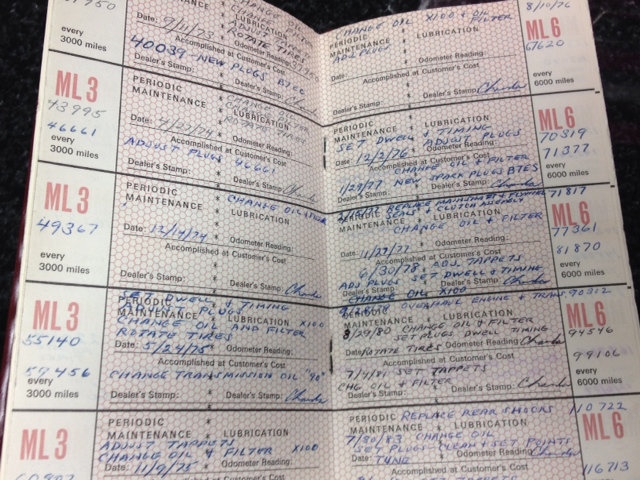 every
3000 miles
CHANGE OIL
LUBRICATION
ADJUST
ROTATE TIRES
Date: 9/11/73
40039 NEW PLUGS B7EC
Dealer's Stamp:
ML 3
43995
46661
every
3000 miles
PERIODIC
MAINTENANCE
LUBRICATION
CHANGE OIL
Date:
Accomplished at Customer's Cost
ADJUST PLUGS 46661
Dealer's Stamp:
Dealer's Stamp:
ML 3
49367
every
3000 miles
PERIODIC
MAINTENANCE
CHANGE OIL & FILTER
LUBRICATION
Date: 12/14/74
Odometer Reading:
Accomplished at Customer's Cost
Dealer's Stamp:
Dealer's Stamp:
ML 3
55140
59456
every
3000 miles
SET DWELL & TIMING
PERIODIC
PLUGS
MAINTENANCE
LUBRICATION
X100
CHANGE OIL AND FILTER
ROTATE TIRES
Date: 5/24/75
Odometer Reading:
Accomplished at Customer's Cost
CHANGE TRANSMISSION OIL "90"
Dealer's Stamp:
Dealer's Stamp:
ML 3
PERIODIC
MAINTENANCE
LUBRICATION
ADJUST TAPPETS
CHANGE OIL & FILTER X100
Date: 11/9/75
Odometer Reading:
Accomplished at Customer's Cost
CHANGE OIL X100 &
FILTER
8/10/76
PERIODIC
MAINTENANCE
LUBRICATION
ADJ PLUGS
Date:
Odometer Reading:
ML 6
67620
Accomplished at Customer's Cost
Dealer's Stamp:
Dealer's Stamp:
every
6000 miles
PERIODIC
MAINTENANCE
LUBRICATION
SET DWELL & TIMING
Date: 12/2/76
ADJUST PLUGS
ML 6
70319
71377
Accomplished at Customer's Cost
CHANGE OIL & FILTER
1/29/77 NEW SPARK PLUGS B7ES
every
6000 miles
REPLACE MAINSHAFT
SEALS & CLUTCH ASSEMBLY
71817
MAINTENANCE
LUBRICATION
CHANGE OIL & FILTER
Date: 11/27/77
Odometer Reading:
ML 6
77361
81870
Accomplished at Customer's Cost
6/30/78, ADJ TAPPETS
ADJ PLUGS SET DWELL & TIMING
Dealer's Stamp:
CHANGE OIL X100
every
6000 miles
OVERHAUL ENGINE & TRANS.
90312
MAINTENANCE
LUBRICATION
8/29/80 CHANGE OIL & FILTER
SET PLUGS DWELL TIMING
ROTATE TIRES
Odometer Reading:
ML 6
94546
99106
Accomplished at Customer's Cost
SET TAPPETS
CHG OIL & FILTER
Dealer's Stamp:
every
6000 miles
PERIODIC
REPLACE REAR SHOCKS
110722
MAINTENANCE
LUBRICATION
7/30/83 CHANGE OIL
SET PLUGS-CLEAN & SET POINTS
Date: TUNE
Odometer Reading:
ML 6
116713
Accomplished at Customer's Cost